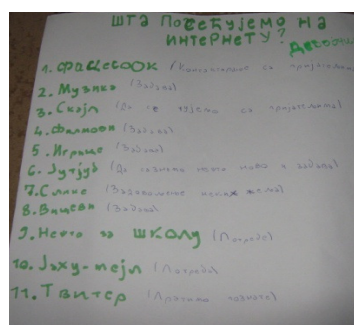 ШТА ПОСЕЋУЈЕМО НА
ИНТЕРНЕТУ?
Девојчице
1. ФАЦЕБООК (Комуникација са пријатељима)
2. Музика (Забава)
3. Скајп (Да се чујемо са пријатељима)
4. Филмови (Забава)
5. Игрице (Забава)
6. Јутјуб (Да сазнамо нешто ново и забава)
7. Слике (Задовољење неких жеља)
8. Вицеви (Забава)
9. Нешто за ШКОЛУ (Потреба)
10. Јаху-мејл (Потреба)
11. ТВИТЕР (Пратимо познате)